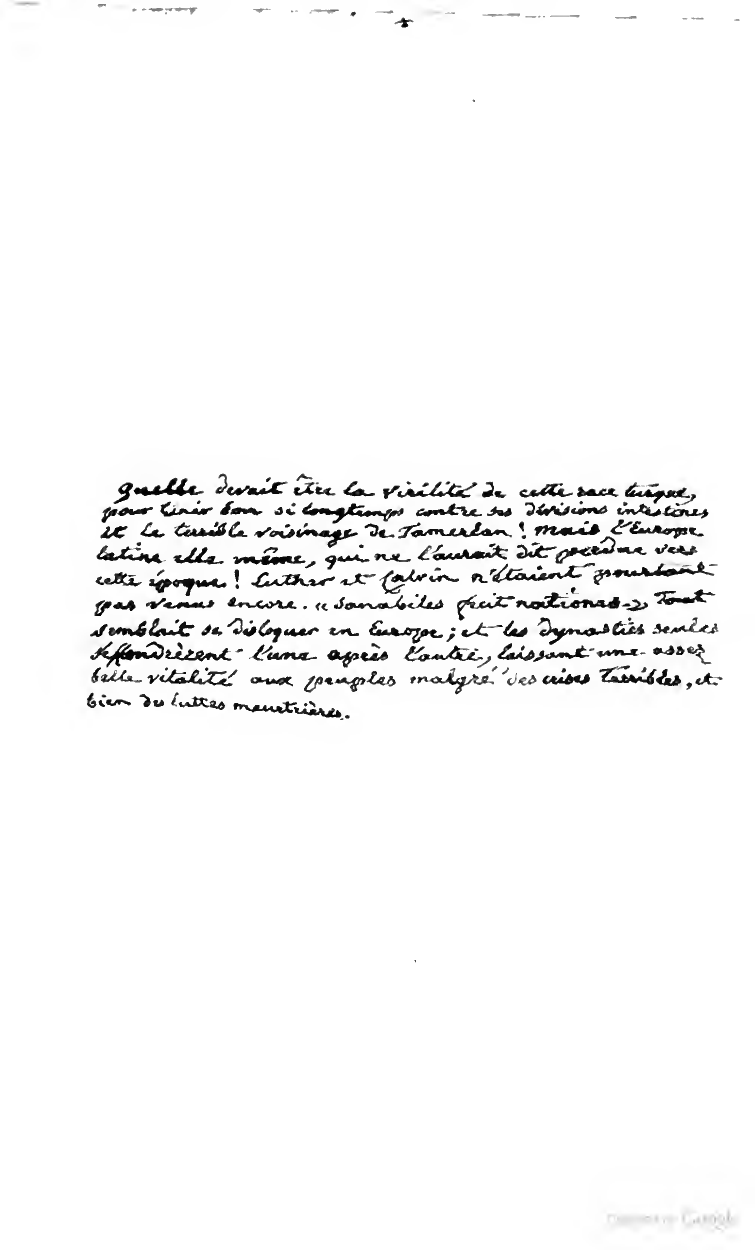 Quelle devait être la virilité de cette race turque,
pour tenir bon si longtemps contre ses divisions intestines
et le terrible voisinage de Tamerlan ! Mais l'Europe
latine elle même, qui ne l'aurait dit perdue vers
cette époque ! Luther et Calvin n'étaient pourtant
pas venus encore. « Sanabiles fecit nationes. » Tout
semblait se disloquer en Europe ; et les dynasties seules
s'effondrèrent l'une après l'autre, laissant une assez
belle vitalité aux peuples malgré des crises terribles, et
bien des luttes meurtrières.
Google